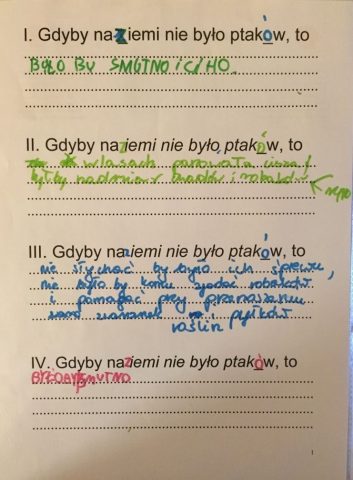 I. Gdyby na Ziemi nie było ptaków, to
BYŁO BY SMUTNO I CIHO.
II. Gdyby na ziemi nie było ptaków, to
w lasach panowała cisza,
byłby nadmiar owadów i robaków
III. Gdyby na ziemi nie było ptaków, to
nie słychać by było ich śpiewu,
nie było by komu zjadać robaków
i pomagać przy przenoszeniu
ziarenek i pyłków
roślin
IV. Gdyby na ziemi nie było ptaków, to
BYŁOBY SMUTNO
1